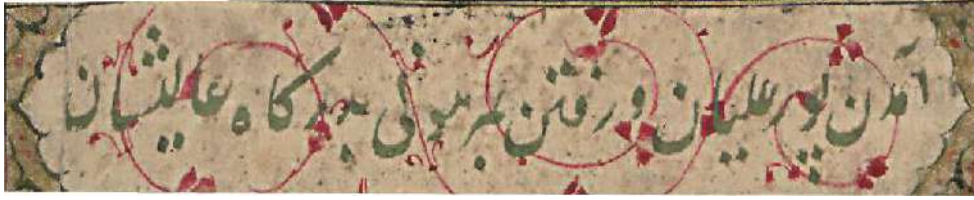 آمدن پور علیان و رفتن برسولی بدرگاه عالیشان